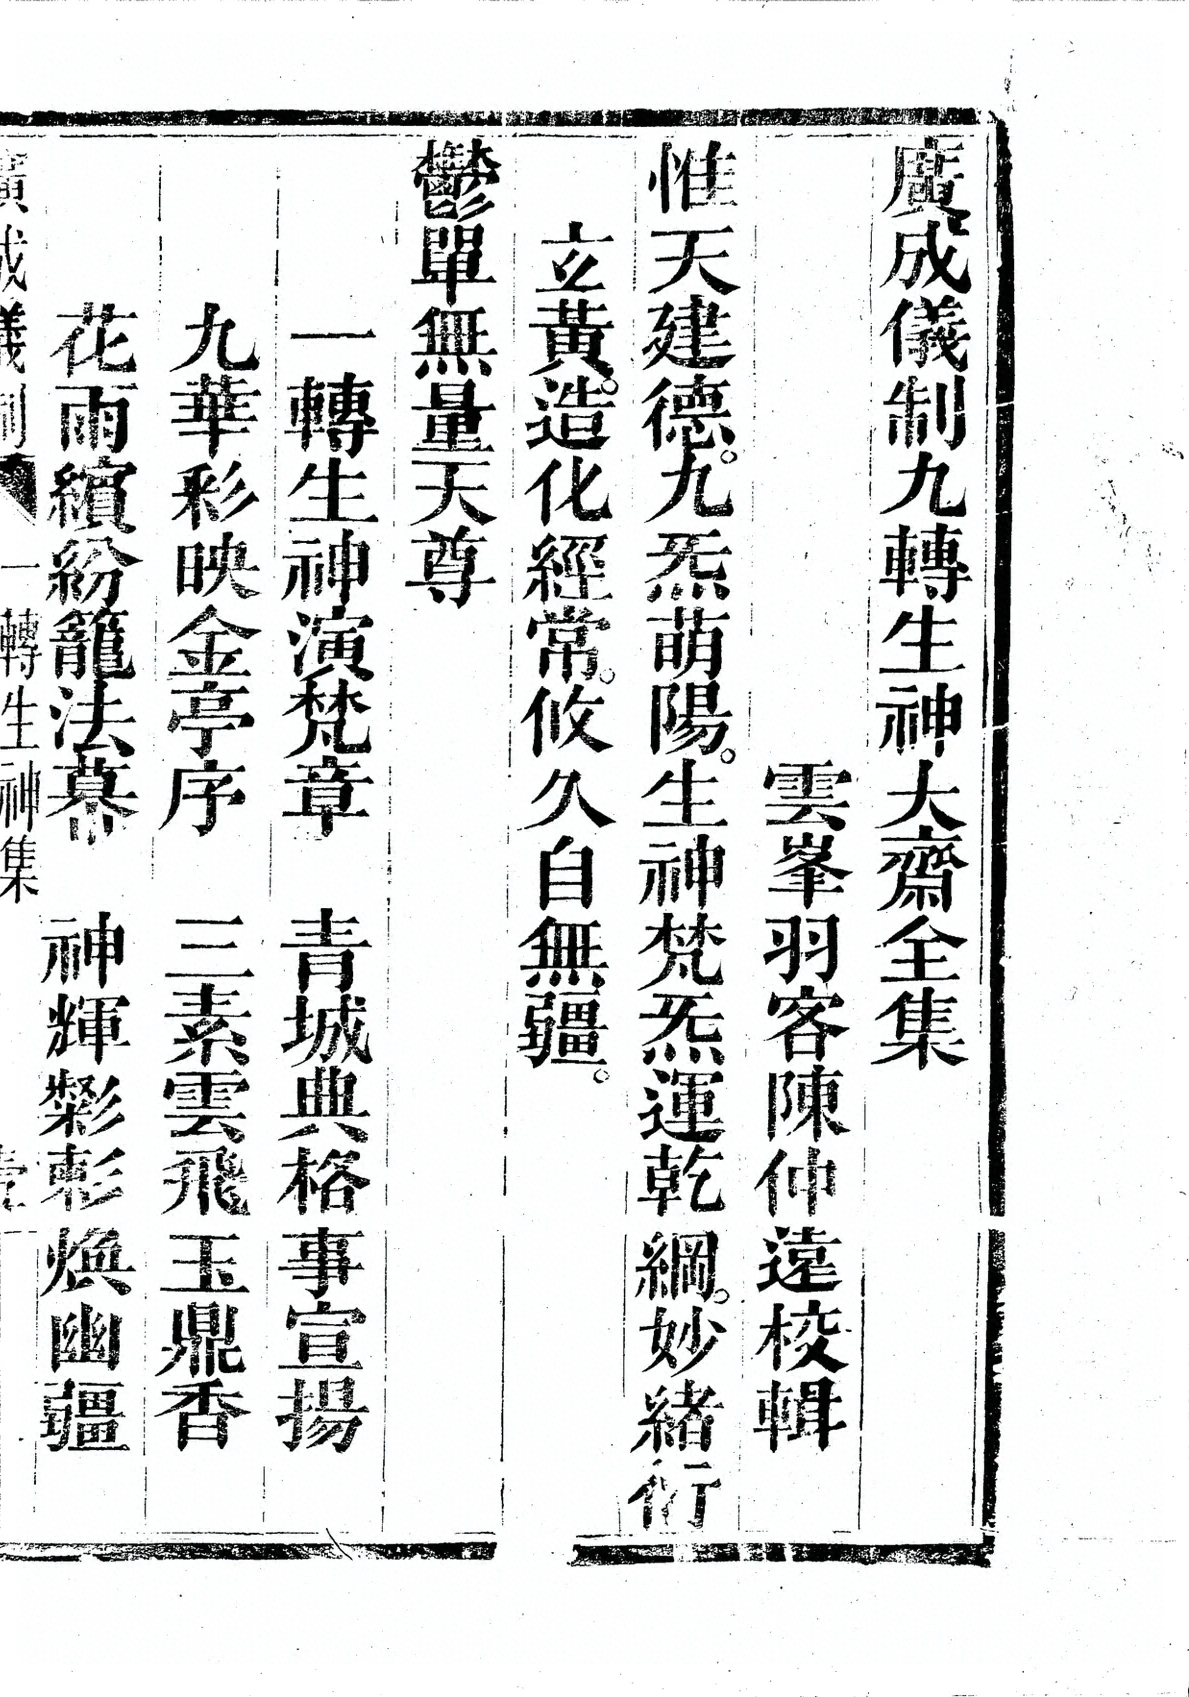 廣成儀制九轉生神大齋全集
雲峯羽客陳仲遠校輯
惟天建德。九炁萌陽。生神梵炁運乾綱。妙緒衍
立黃。造化經常。攸久自無疆。
鬱單無量天尊
一轉生神演梵章　青城典格事宣揚
九華彩映金亭序　三素雲飛玉鼎香
花雨繽紛籠法幕　神輝粲彰煥幽疆
廣成儀制　一轉生神集　壹